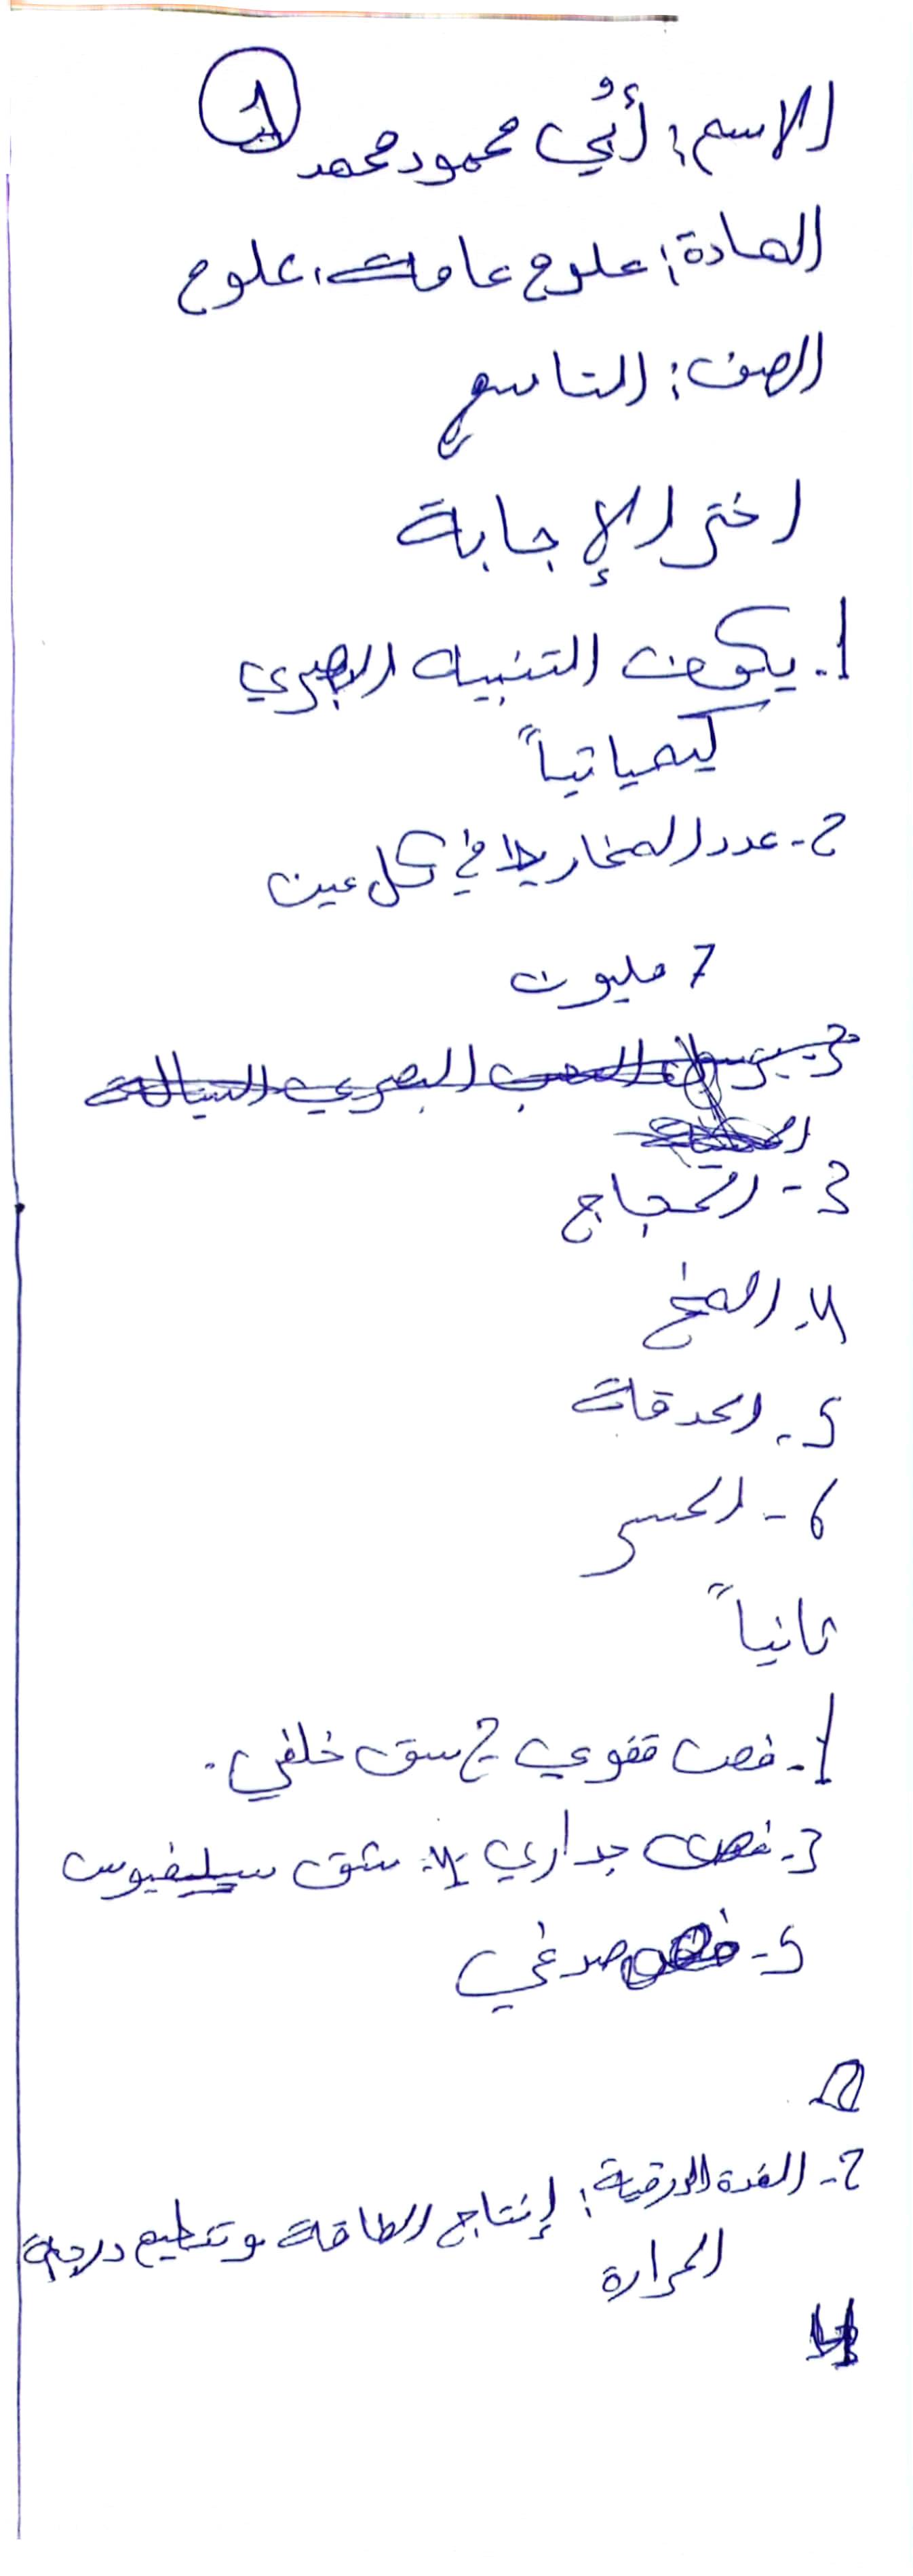 1
الاسم: أُبي محمود محمد
المادة: علوم عامة، علوم
الصف: التاسع
اختر الإجابة
1. يكون التنبيه البصري
كيميائياً
2- عدد المخاريط في كل عين
7 مليون
3- العصب البصري السيالة
3- الحجاج
4. المخ
5. الحدقة
6- الحسر
ثانياً
1- فص قفوي 2 شق خلفي.
3- فص جداري 4: شق سيلفيوس
5- فص صدغي
2- الغدة الدرقية: إنتاج الطاقة وتنظيم درجة
الحرارة